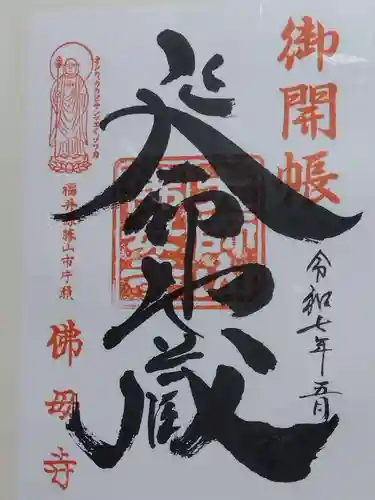 御開帳
令和七年五月
延命地蔵
オンカカカビサンマエイソワカ
福井県勝山市片瀬
佛母寺